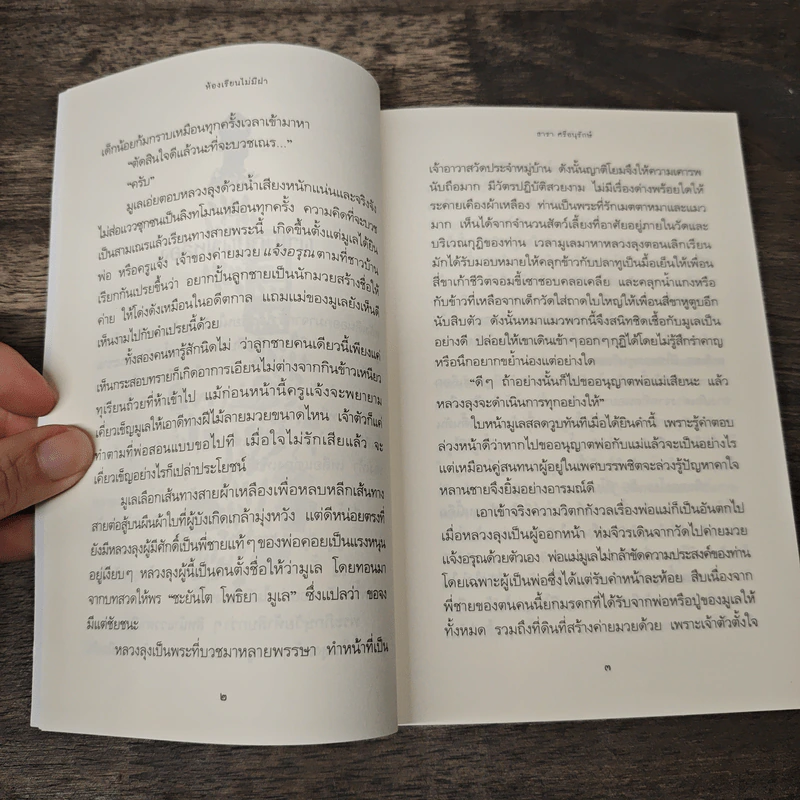 ห้องเรียนไม่มีฝา
เด็กน้อยก้มกราบเหมือนทุกครั้งเวลาเข้ามาหา
“ตัดสินใจดีแล้วนะที่จะบวชเณร...”
“ครับ”
มูเลเอ่ยตอบหลวงลุงด้วยน้ำเสียงหนักแน่นและจริงจัง
ไม่ส่อแววซุกซนเป็นลิงทโมนเหมือนทุกครั้ง ความคิดที่จะบวช
เป็นสามเณรแล้วเรียนทางสายพระนี้ เกิดขึ้นตั้งแต่มูเลได้ยิน
พ่อ หรือครูแจ้ง เจ้าของค่ายมวย แจ้งอรุณ ตามที่ชาวบ้าน
เรียกกันเปรยขึ้นว่า อยากปั้นลูกชายเป็นนักมวยสร้างชื่อให้
ค่าย ให้โด่งดังเหมือนในอดีตกาล แถมแม่ของมูเลยังเห็นดี
เห็นงามไปกับคำเปรยนี้ด้วย
ทั้งสองคนหารู้สักนิดไม่ ว่าลูกชายคนเดียวนี้เพียงแค่
เห็นกระสอบทรายก็เกิดอาการเอียนไม่ต่างจากกินข้าวเหนียว
ทุเรียนถ้วยที่ห้าเข้าไป แม้ก่อนหน้านี้ครูแจ้งจะพยายาม
เคี่ยวเข็ญมูเลให้เอาดีทางฝีไม้ลายมวยขนาดไหน เจ้าตัวก็แค่
ทำตามที่พ่อสอนแบบขอไปที เมื่อใจไม่รักเสียแล้ว จะ
เคี่ยวเข็ญอย่างไรก็เปล่าประโยชน์
มูเลเลือกเส้นทางสายผ้าเหลืองเพื่อหลบหลีกเส้นทาง
สายต่อสู้บนผืนผ้าใบที่ผู้บังเกิดเกล้ามุ่งหวัง แต่ดีหน่อยตรงที่
ยังมีหลวงลุงผู้มีศักดิ์เป็นพี่ชายแท้ๆ ของพ่อคอยเป็นแรงหนุน
อยู่เงียบๆ หลวงลุงผู้นี้เป็นคนตั้งชื่อให้ว่ามูเล โดยทอนมา
จากบทสวดให้พร “ชะยันโต โพธิยา มูเล” ซึ่งแปลว่า ขอจง
มีแต่ชัยชนะ
หลวงลุงเป็นพระที่บวชมาหลายพรรษา ทำหน้าที่เป็น
๒
ธารา ศรีอนุรักษ์
เจ้าอาวาสวัดประจำหมู่บ้าน ดังนั้นญาติโยมจึงให้ความเคารพ
นับถือมาก มีวัตรปฏิบัติสวยงาม ไม่มีเรื่องด่างพร้อยใดให้
ระคายเคืองผ้าเหลือง ท่านเป็นพระที่รักเมตตาหมาและแมว
มาก เห็นได้จากจำนวนสัตว์เลี้ยงที่อาศัยอยู่ภายในวัดและ
บริเวณกุฏิของท่าน เวลามูเลมาหาหลวงลุงตอนเลิกเรียน
มักได้รับมอบหมายให้คลุกข้าวกับปลาทูเป็นมื้อเย็นให้เพื่อน
สี่ขาเก้าชีวิตจอมขี้เซาชอบคลอเคลีย และคลุกน้ำแกงหรือ
กับข้าวที่เหลือจากเด็กวัดใส่ถาดใบใหญ่ให้เพื่อนสี่ขาหูตูบอีก
นับสิบตัว ดังนั้นหมาแมวพวกนี้จึงสนิทชิดเชื้อกับมูเลเป็น
อย่างดี ปล่อยให้เขาเดินเข้าๆ ออกๆ กุฏิได้โดยไม่รู้สึกรำคาญ
หรือนึกอยากขย้ำน่องแต่อย่างใด
“ดีๆ ถ้าอย่างนั้นก็ไปขออนุญาตพ่อแม่เสียนะ แล้ว
หลวงลุงจะดำเนินการทุกอย่างให้”
ใบหน้ามูเลสลดวูบทันทีเมื่อได้ยินคำนี้ เพราะรู้คำตอบ
ล่วงหน้าดีว่าหากไปขออนุญาตพ่อกับแม่แล้วจะเป็นอย่างไร
แต่เหมือนคู่สนทนาผู้อยู่ในเพศบรรพชิตจะล่วงรู้ปัญหาคาใจ
หลานชายจึงยิ้มอย่างอารมณ์ดี
เอาเข้าจริงความวิตกกังวลเรื่องพ่อแม่ก็เป็นอันตกไป
เมื่อหลวงลุงเป็นผู้ออกหน้า ห่มจีวรเดินจากวัดไปค่ายมวย
แจ้งอรุณด้วยตัวเอง พ่อแม่มูเลไม่กล้าขัดความประสงค์ของท่าน
โดยเฉพาะผู้เป็นพ่อซึ่งได้แต่รับคำหน้าละห้อย สืบเนื่องจาก
พี่ชายของตนคนนี้ยกมรดกที่ได้รับจากพ่อหรือปู่ของมูเลให้
ทั้งหมด รวมถึงที่ดินที่สร้างค่ายมวยด้วย เพราะเจ้าตัวตั้งใจ
๓